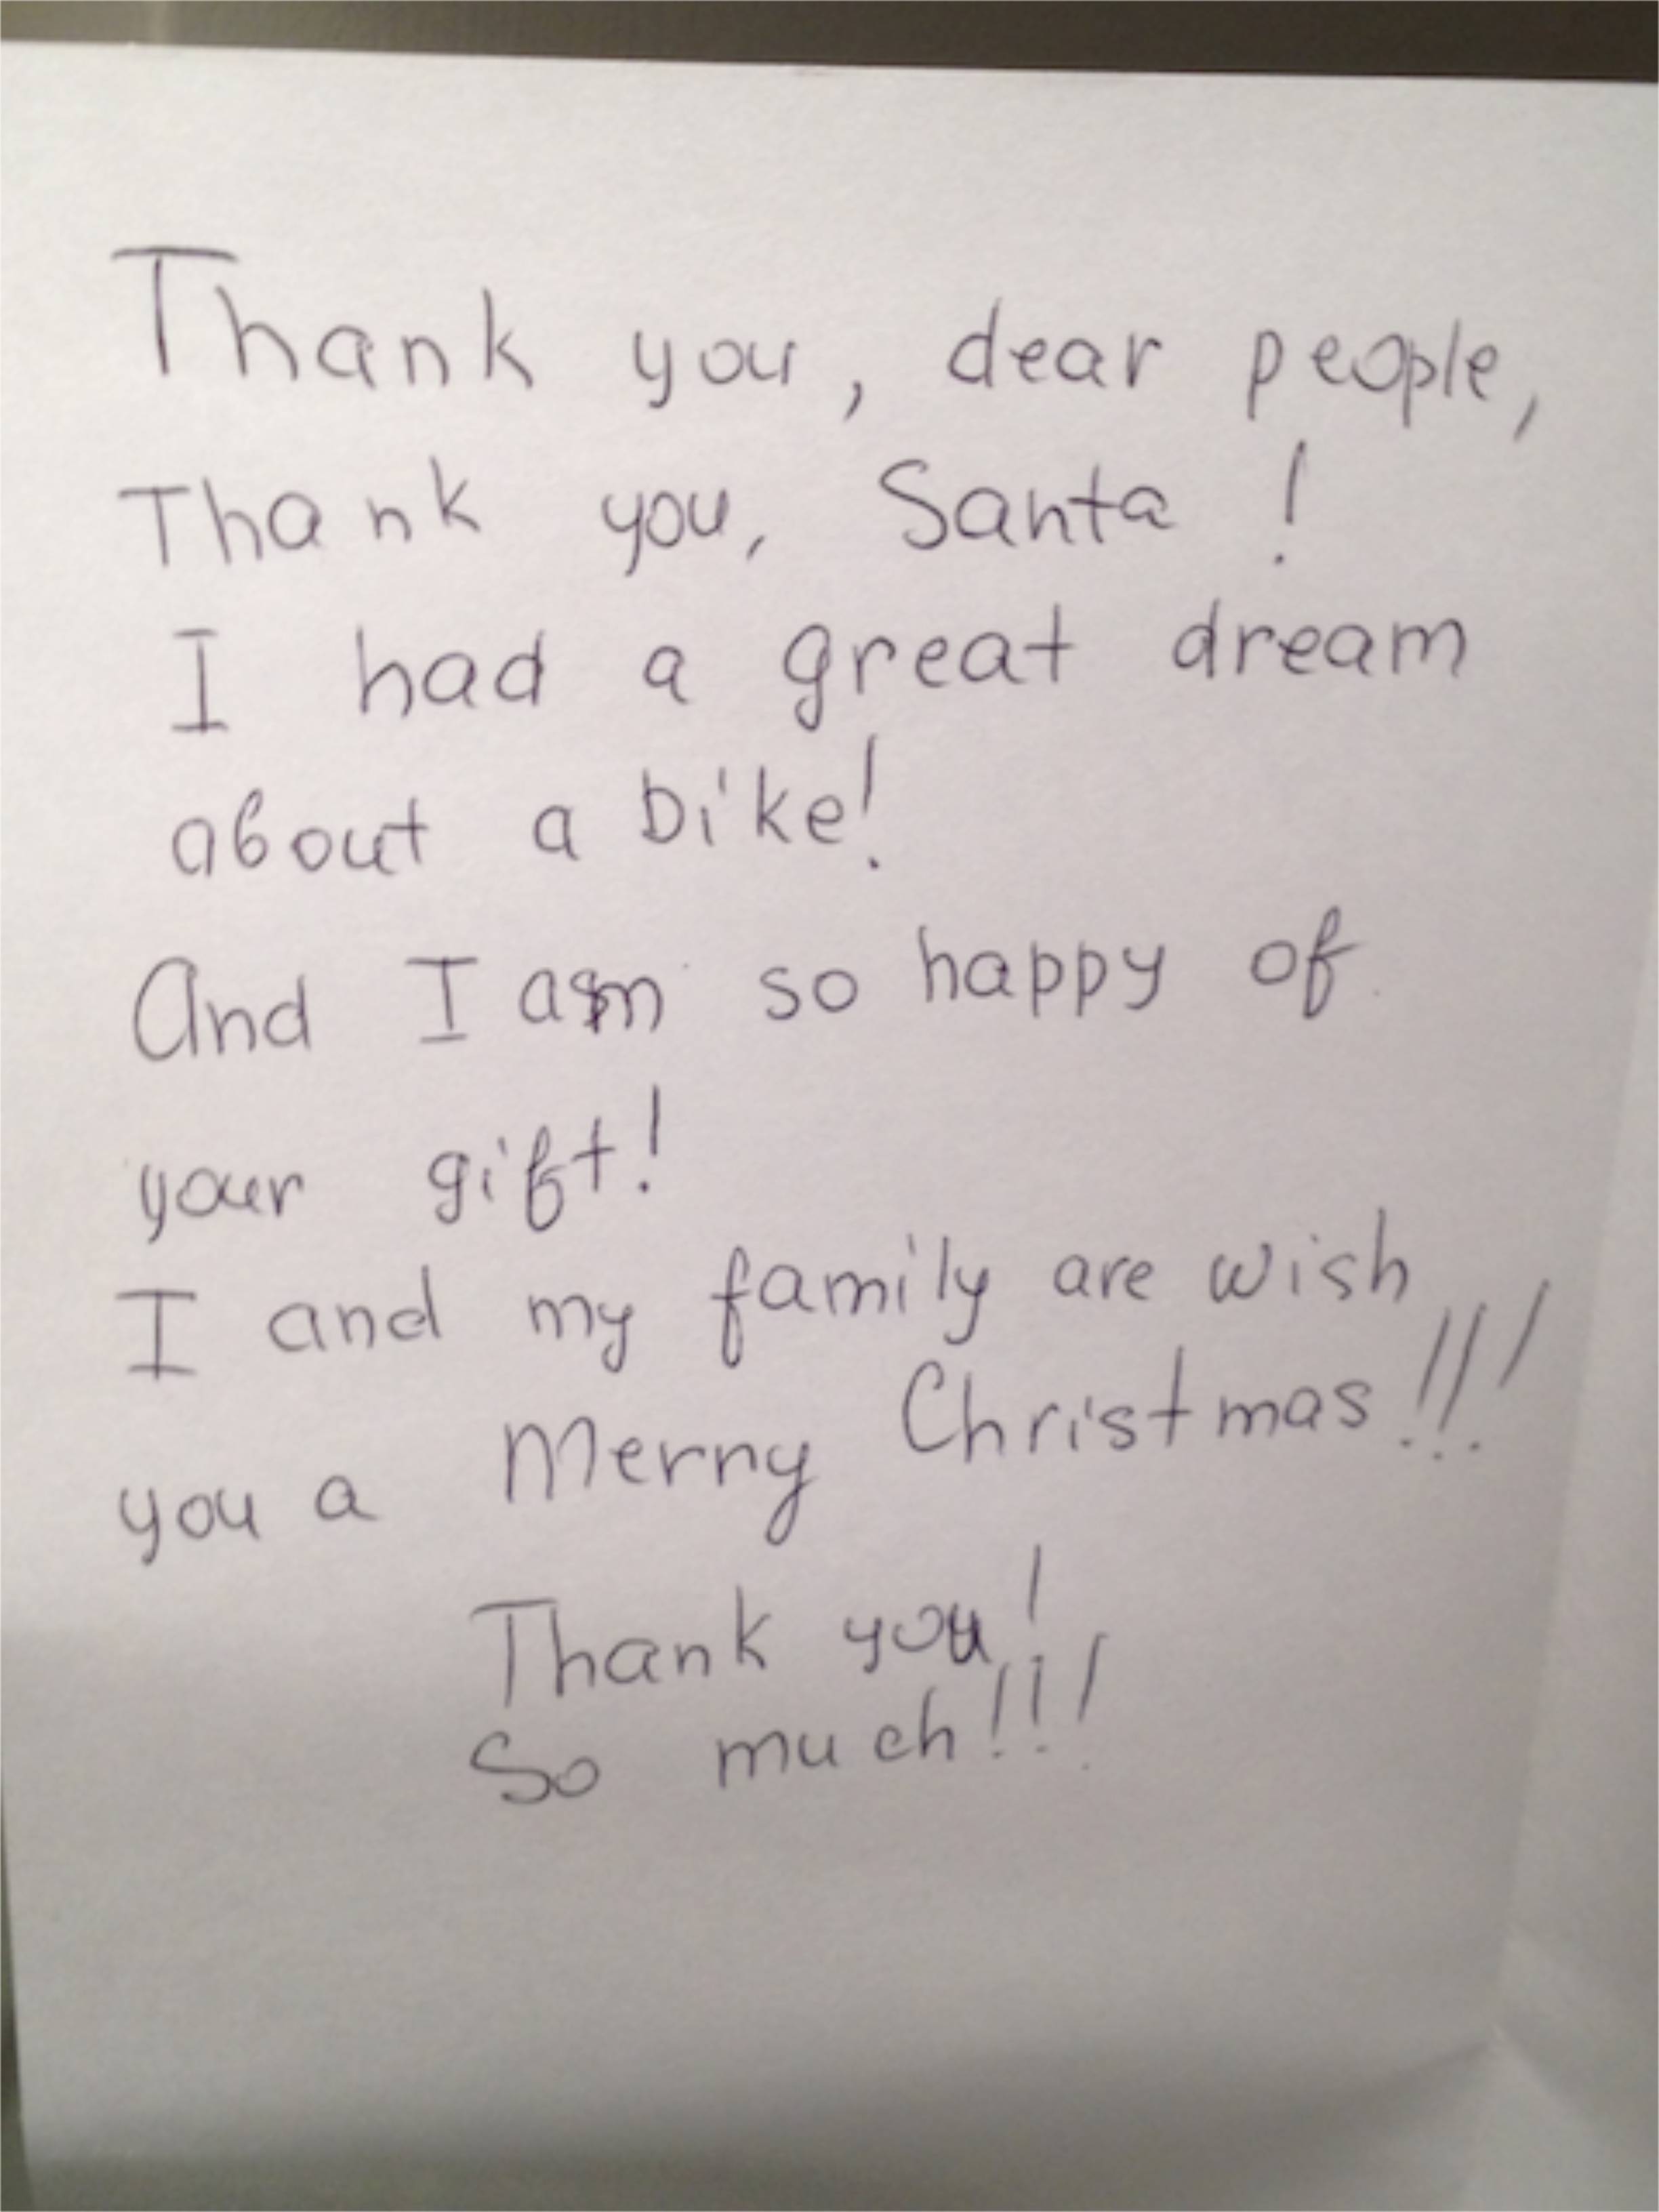 Thank you, dear people,
Thank you, Santa!
I had a great dream
about a bike!
And I am so happy of
your gift!
I and my family are wish
you a Merry Christmas!!!
Thank you!
So much!!!